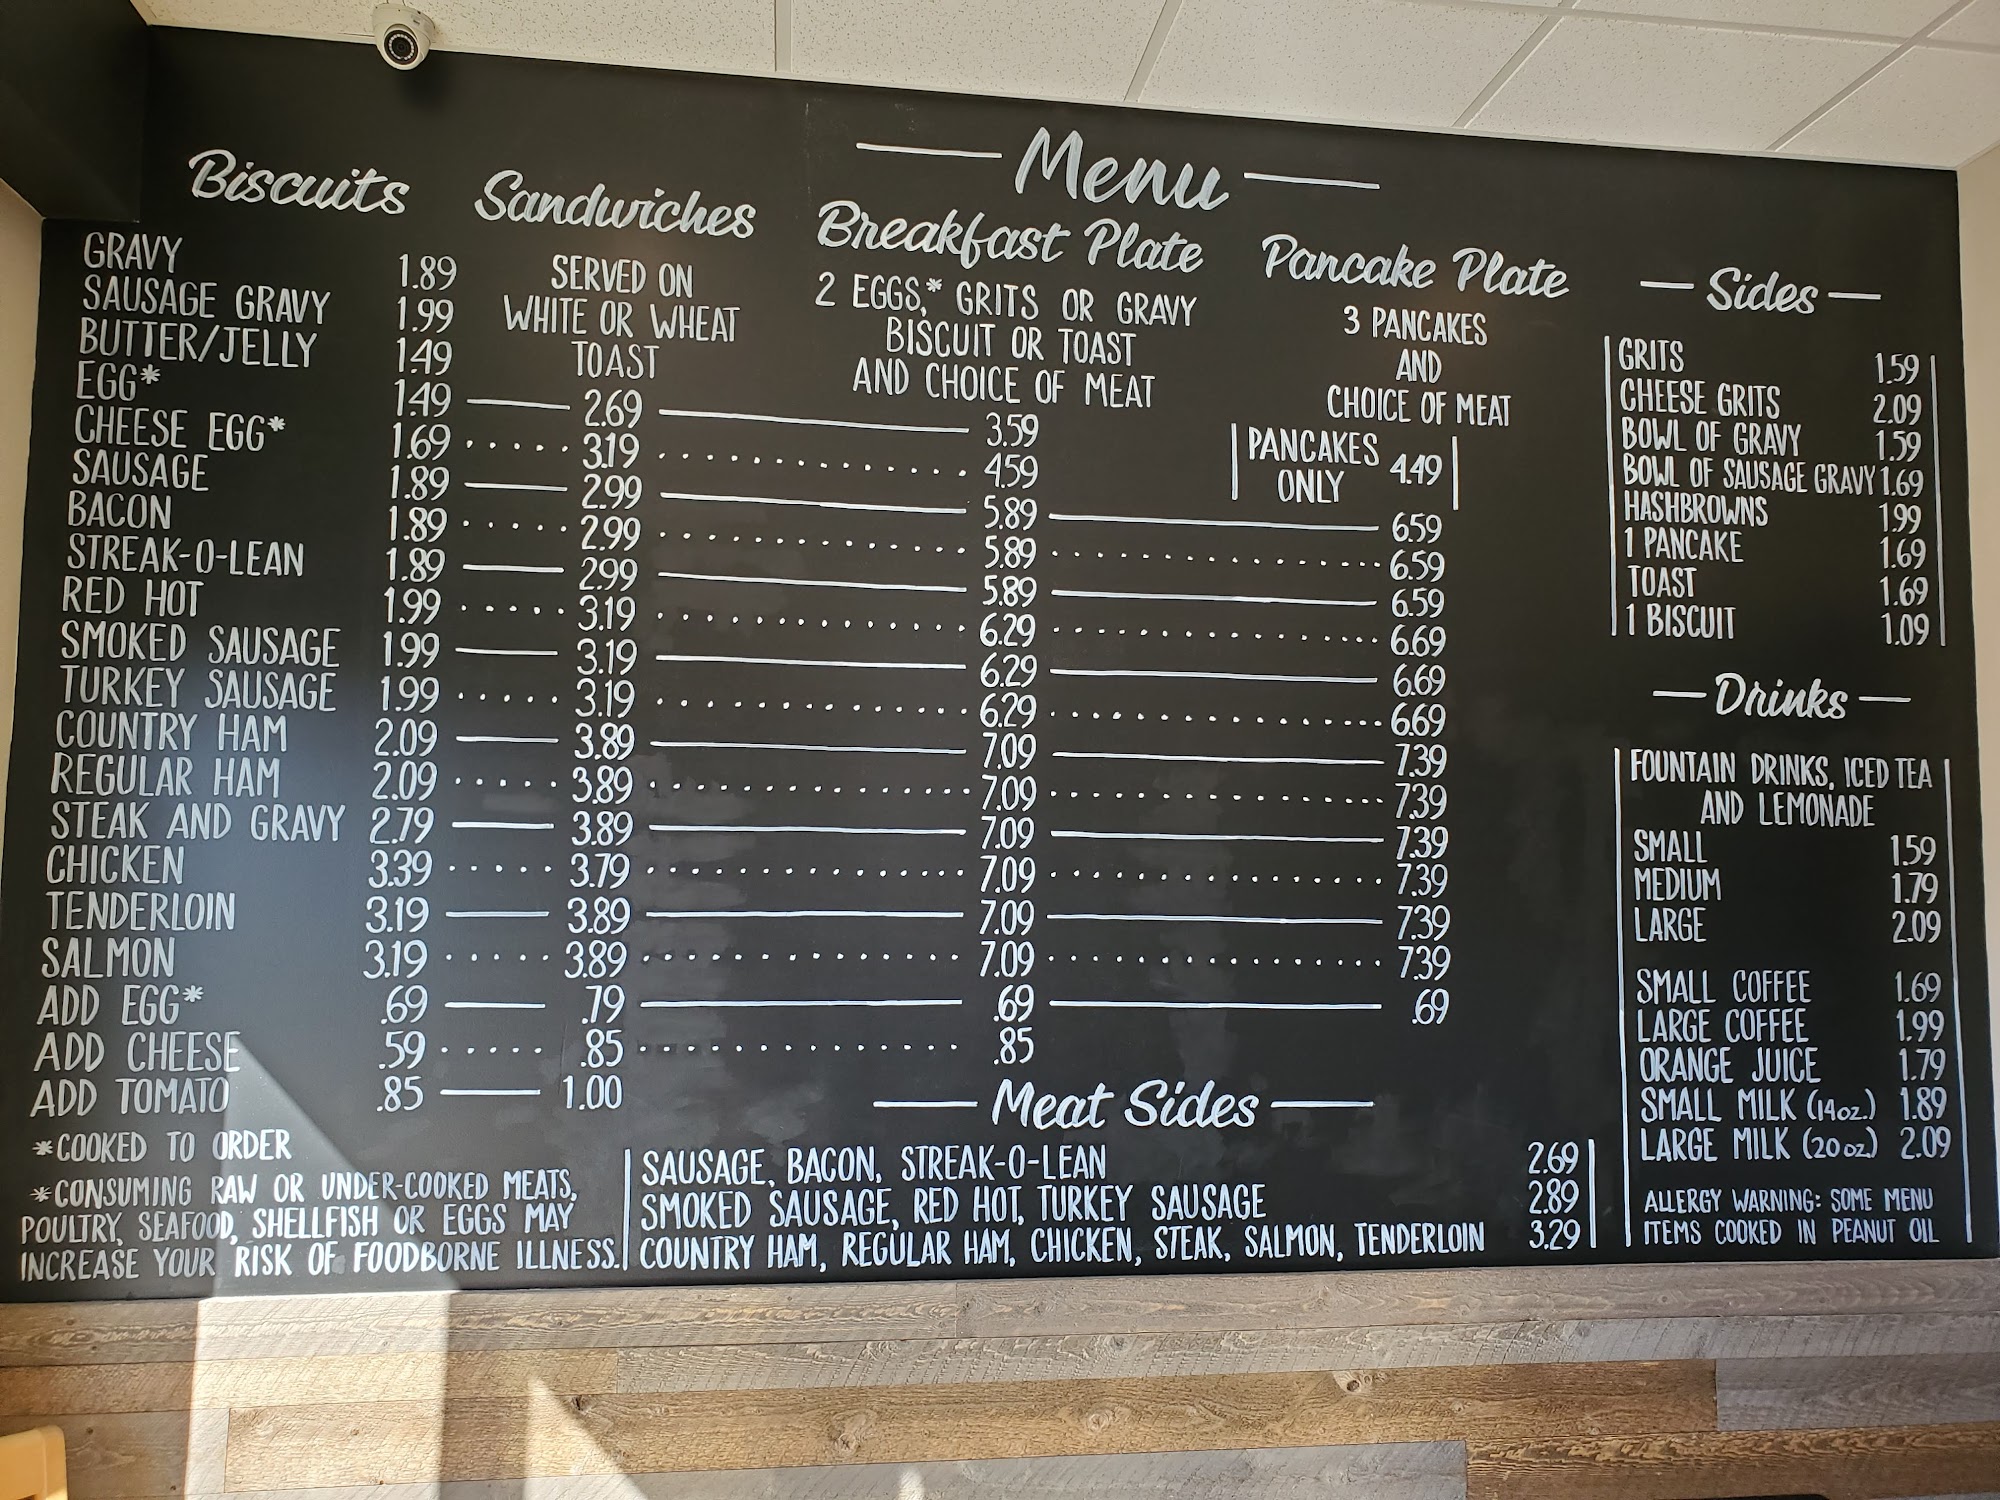 Menu
Biscuits Sandwiches Breakfast Plate Pancake Plate
SERVED ON
WHITE OR WHEAT
TOAST
2 EGGS,* GRITS OR GRAVY
BISCUIT OR TOAST
AND CHOICE OF MEAT
3 PANCAKES
AND
CHOICE OF MEAT
PANCAKES
ONLY 4.49
GRAVY 1.89
SAUSAGE GRAVY 1.99
BUTTER/JELLY 1.49
EGG* 1.49 2.69 3.59
CHEESE EGG* 1.69 3.19 4.59
SAUSAGE 1.89 2.99 5.89 6.59
BACON 1.89 2.99 5.89 6.59
STREAK-O-LEAN 1.89 2.99 5.89 6.59
RED HOT 1.99 3.19 6.29 6.69
SMOKED SAUSAGE 1.99 3.19 6.29 6.69
TURKEY SAUSAGE 1.99 3.19 6.29 6.69
COUNTRY HAM 2.09 3.89 7.09 7.39
REGULAR HAM 2.09 3.89 7.09 7.39
STEAK AND GRAVY 2.79 3.89 7.09 7.39
CHICKEN 3.39 3.79 7.09 7.39
TENDERLOIN 3.19 3.89 7.09 7.39
SALMON 3.19 3.89 7.09 7.39
ADD EGG* .69 .79 .69 .69
ADD CHEESE .59 .85 .85
ADD TOMATO .85 1.00
*COOKED TO ORDER
*CONSUMING RAW OR UNDER-COOKED MEATS,
POULTRY, SEAFOOD, SHELLFISH OR EGGS MAY
INCREASE YOUR RISK OF FOODBORNE ILLNESS.
Meat Sides
SAUSAGE, BACON, STREAK-O-LEAN 2.69
SMOKED SAUSAGE, RED HOT, TURKEY SAUSAGE 2.89
COUNTRY HAM, REGULAR HAM, CHICKEN, STEAK, SALMON, TENDERLOIN 3.29
Sides
GRITS 1.59
CHEESE GRITS 2.09
BOWL OF GRAVY 1.59
BOWL OF SAUSAGE GRAVY 1.69
HASHBROWNS 1.99
1 PANCAKE 1.69
TOAST 1.69
1 BISCUIT 1.09
Drinks
FOUNTAIN DRINKS, ICED TEA
AND LEMONADE
SMALL 1.59
MEDIUM 1.79
LARGE 2.09
SMALL COFFEE 1.69
LARGE COFFEE 1.99
ORANGE JUICE 1.79
SMALL MILK (14oz.) 1.89
LARGE MILK (20oz.) 2.09
ALLERGY WARNING: SOME MENU
ITEMS COOKED IN PEANUT OIL